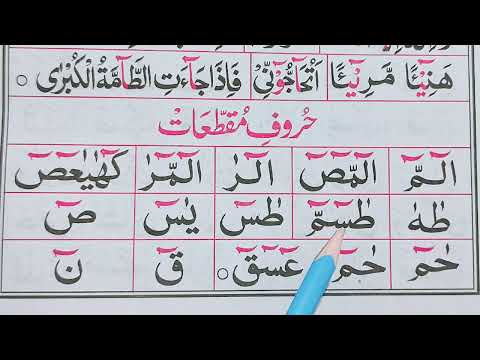 هَنِيْٓـًٔا مَّرِيْٓـًٔا اَتُحَآجُّوْٓنِّيْ فَاِذَا جَآءَتِ الطَّآمَّةُ الْكُبْرٰى ○
حُروُفِ مُقَطَّعَات
الٓـمّٓ الٓمّٓصٓ الٓرٰ الٓمّٓرٰ كٓهٰيٰعٓصٓ
طٰهٰ طٰسٓمّٓ طٰسٓ يٰسٓ صٓ
حٰمٓ حٰمٓ عٓسٓقٓ ○ قٓ نٓ